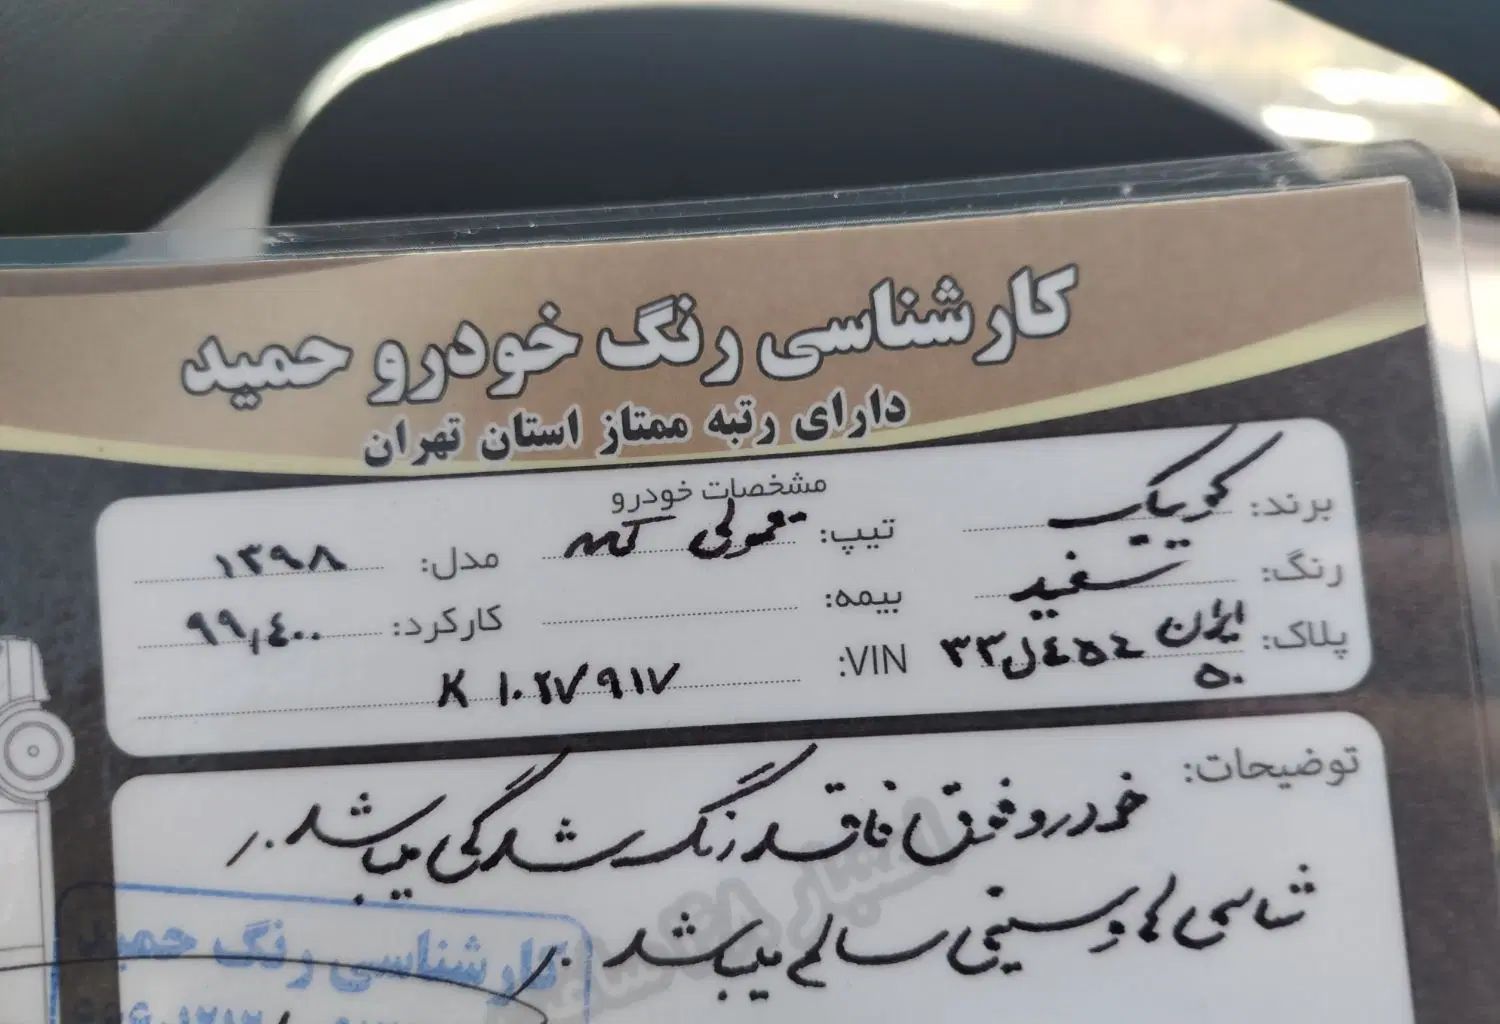 کارشناسی رنگ خودرو حمید
دارای رتبه ممتاز استان تهران
مشخصات خودرو
برند: کوییک تیپ: معمولی مدل: ۱۳۹۸
رنگ: سفید بیمه: کارکرد: ۹۹,۴۰۰
پلاک: ایران ۵۰ ۳۳ل VIN:
K ۱۰۲۷۹۱۷
توضیحات:
خودرو فوق فاقد رنگ شدگی میباشد.
شاسی ها و سینی سالم میباشد.
کارشناسی رنگ حمید